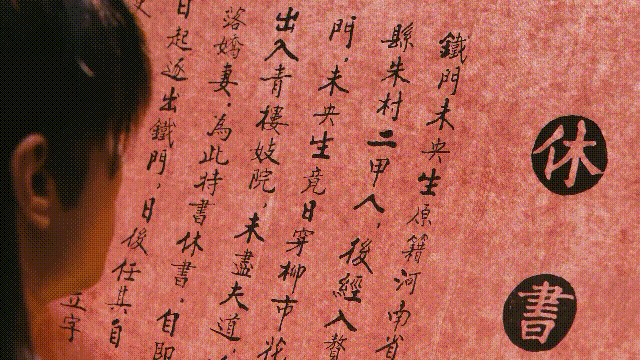 休書
鐵門未央生原籍河南省
縣朱村二甲人,後經入贅
門,未央生竟日穿柳市花
出入青樓妓院,未盡夫道,
落嬌妻,為此特書休書.自即
日起逐出鐵門,日後任其自
立字